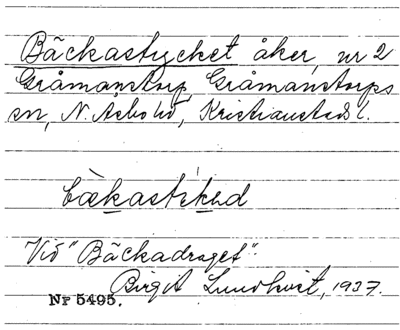 Bäckastycket åker, nr 2
Gråmanstorp, Gråmanstorps
sn, N. Åsbo hd, Kristianstads l.
bækastikəd
Vid "Bäckadraget".
Birgit Lundkvist, 1937.
Nr 5495.